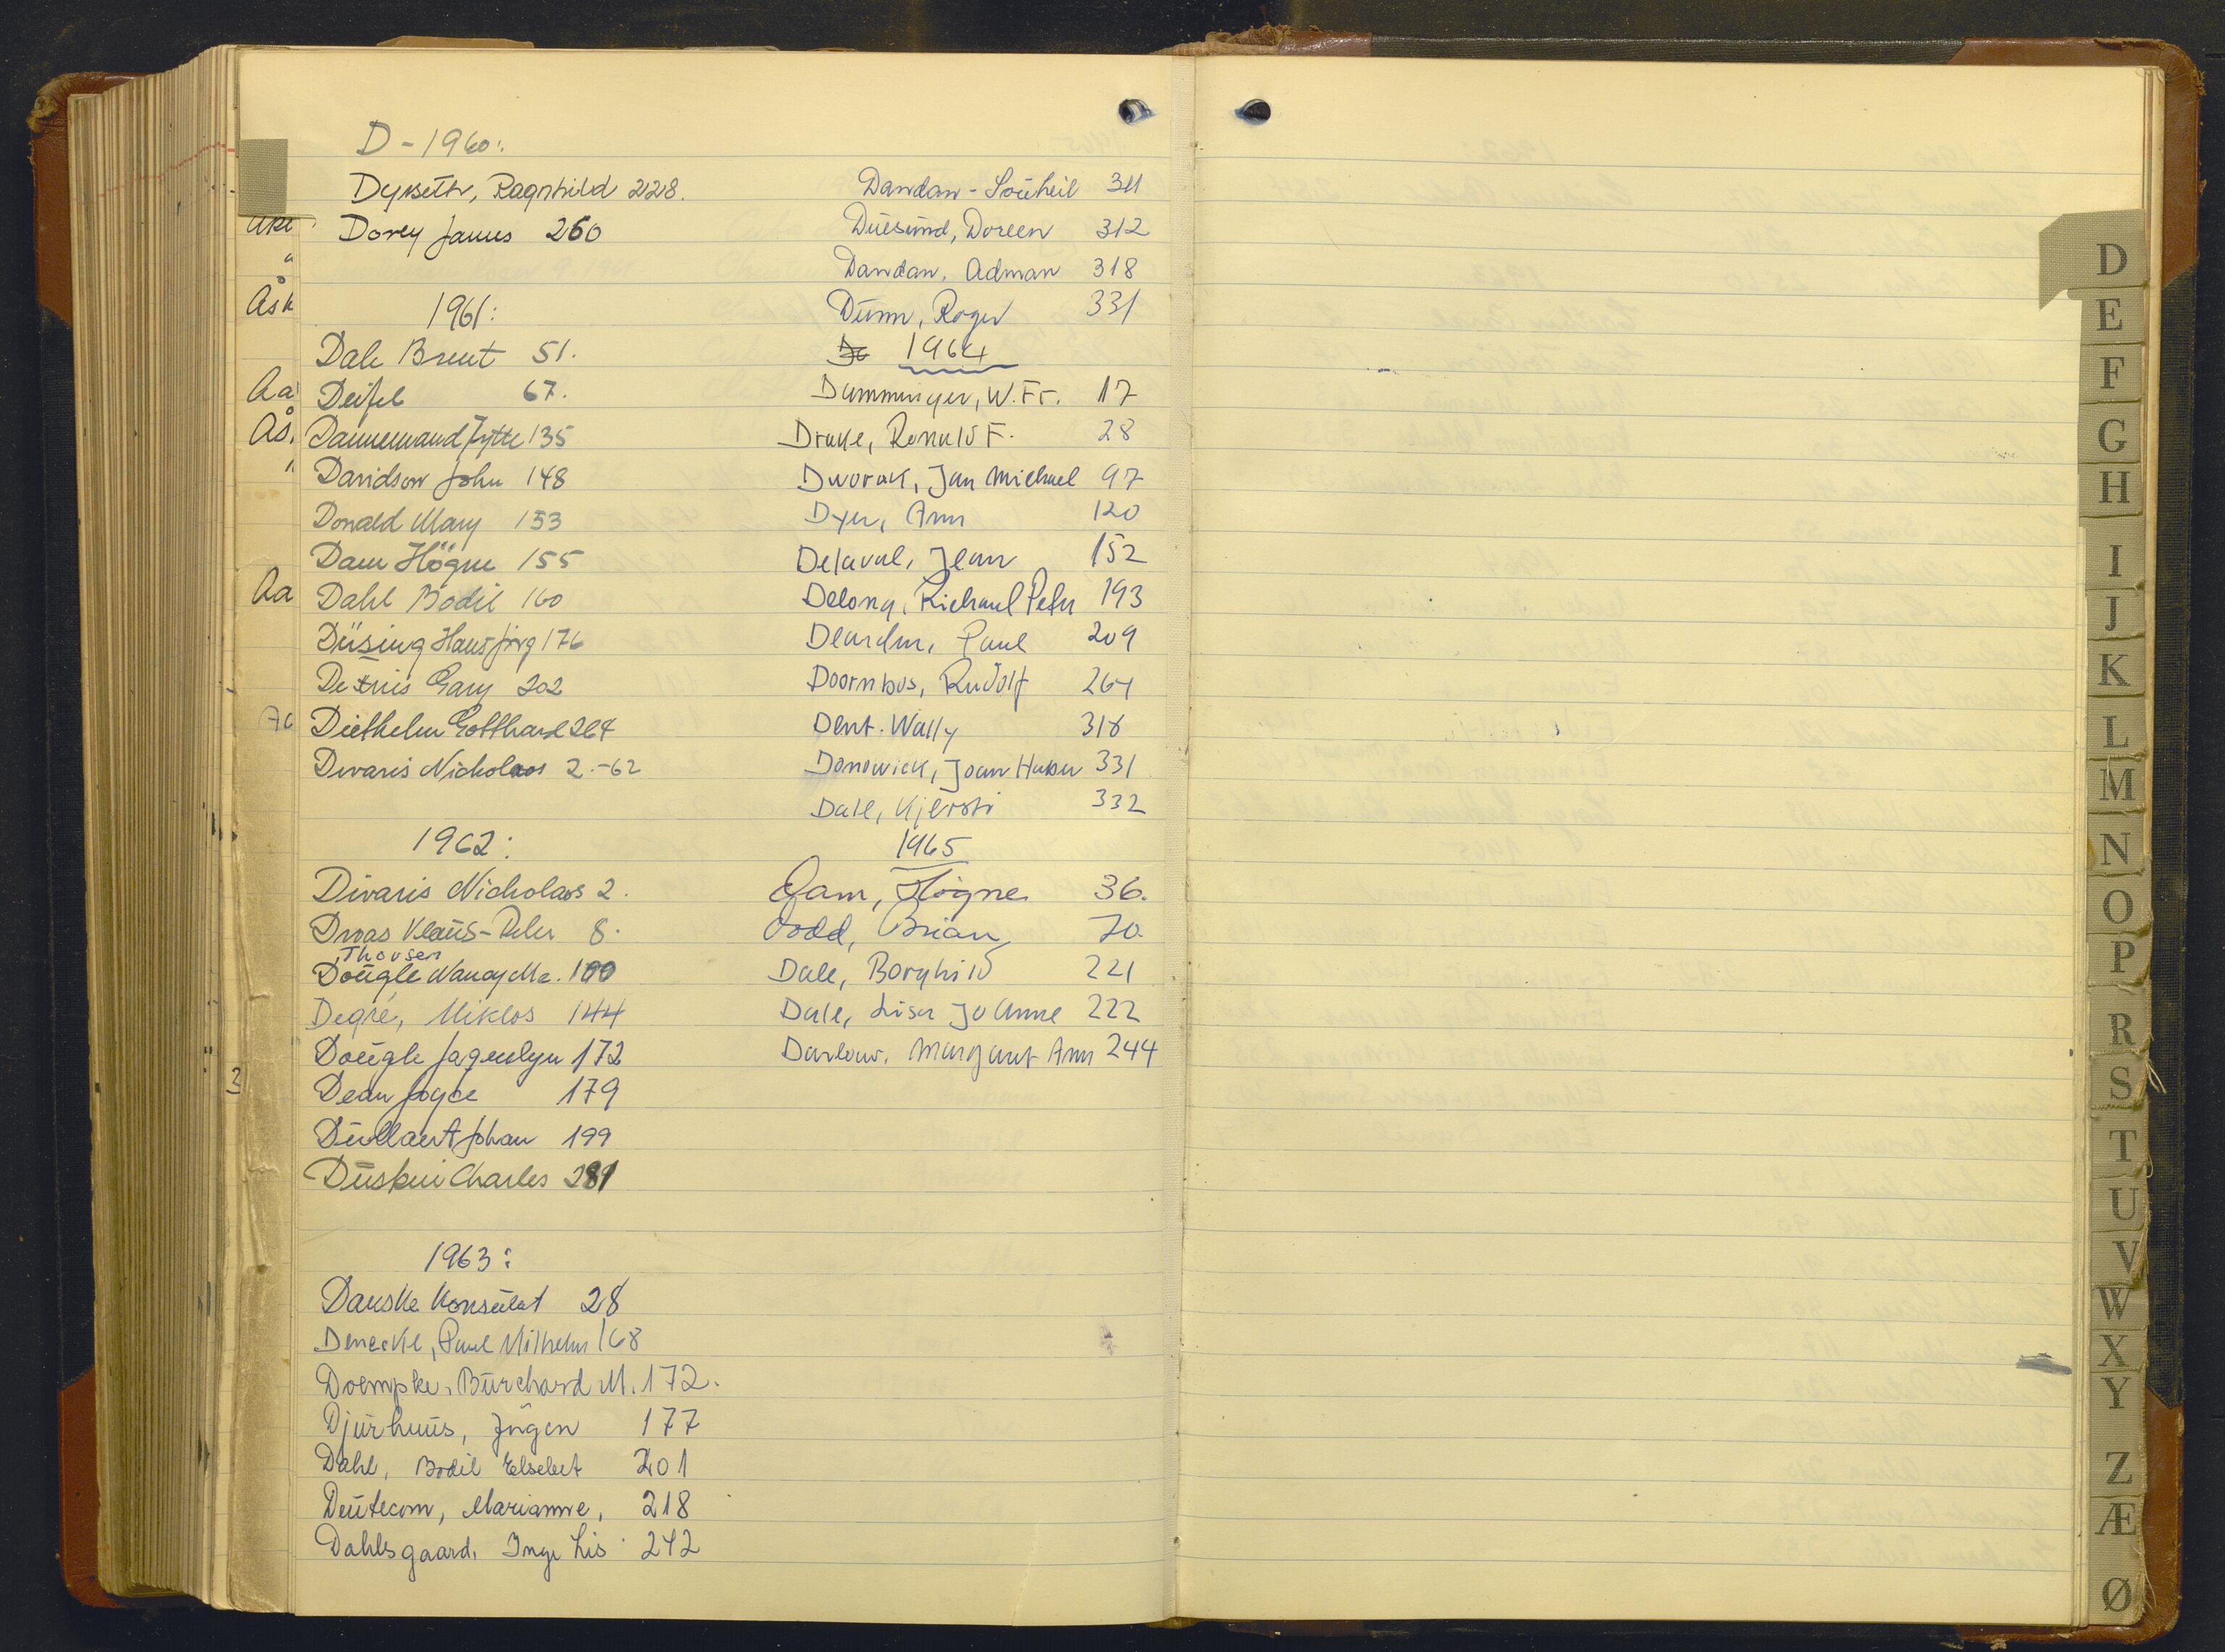 D - 1960:
Dyrseth, Ragnhild 228.
Dorey James 260
1961:
Dale Brent 51.
Deifel 67.
Dannemand Jytte 135
Davidson John 148
Donald Mary 153
Dam Högne 155
Dahl Bodil 160
Düsing Hansjörg 176
Detnis Gary 202
Diethelm Gotthard 264
Divaris Nicholaos 2.-62
1962:
Divaris Nicholaos 2.
Droas Klaus-Peter 8.
Thousen
Dougle Nancy Mc. 100
Degré, Miklos 144
Dougle Jaquelyn 172
Dean Joyce 179
Dullaert Johan 199
Duskin Charles 281
1963:
Danske Konsulat 28
Denecke, Paul Wilhelm 168
Doempke, Burchard M. 172.
Djurhuus, Jögen 177
Dahl, Bodil Elsebet 201
Deutecom, Marianne, 218
Dahlsgaard, Inge Lis 242
Dandan - Souheil 311
Duesund, Doreen 312
Dandan, Adman 318
Dunn, Roger 331
1964
Dumminger, W. Fr. 17
Drake, Ronald F. 28
Dvorak, Jan Michael 97
Dyer, Ann 120
Delaval, Jean 152
Delong, Richard Peter 193
Dearden, Paul 209
Doornbos, Rudolf 264
Dent. Wally 318
Donowick, Joan Huber 331
Dale, Kjersti 332
1965
Dam, Högne 36.
Dodd, Brian 70.
Dale, Borghild 221
Dale, Lisa JoAnne 222
Darlow, Margaret Ann 244
Ake
"
Åsk
Aa
Ås.
"
Aa
3
D
E
F
G
H
I
J
K
L
M
N
O
P
R
S
T
U
V
W
X
Y
Z
Æ
Ø